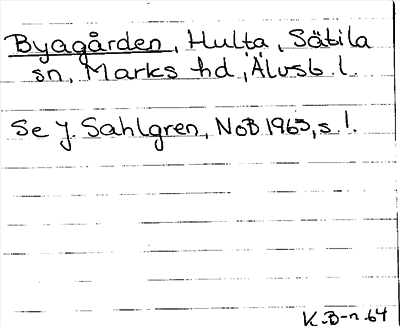 Byagården, Hulta, Sätila
sn, Marks hd, Älvsb. l.
Se J. Sahlgren, NoB 1963, s. 1.
K.B-n-64